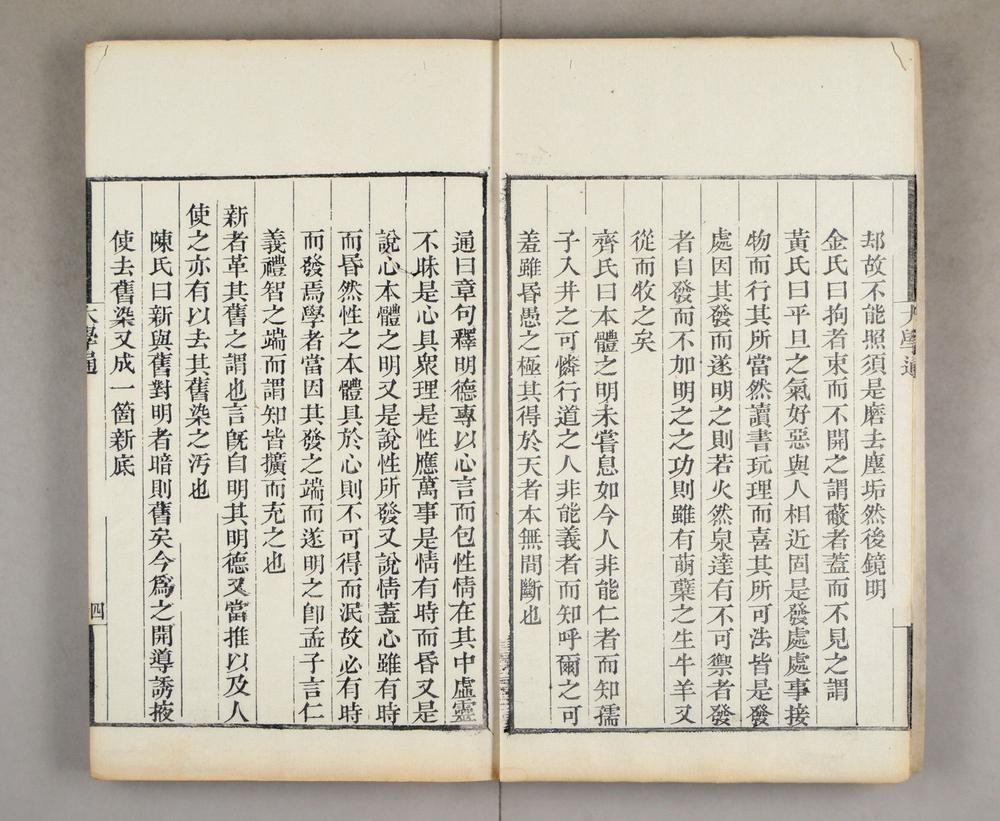 却故不能照須是磨去塵垢然後鏡明
金氏曰拘者束而不開之謂蔽者蓋而不見之謂
黃氏曰平旦之氣好惡與人相近固是發處處事接
物而行其所當然讀書玩理而喜其所可法皆是發
處因其發而遂明之則若火然泉達有不可禦者發
者自發而不加明之之功則雖有萌蘖之生牛羊又
從而牧之矣
齊氏曰本體之明未嘗息如今人非能仁者而知孺
子入井之可憐行道之人非能義者而知呼爾之可
羞雖昏愚之極其得於天者本無間斷也
大學通
通曰章句釋明德專以心言而包性情在其中虛靈
不昧是心具衆理是性應萬事是情有時而昏又是
說心本體之明又是說性所發又說情蓋心雖有時
而昏然性之本體具於心則不可得而泯故必有時
而發焉學者當因其發之端而遂明之卽孟子言仁
義禮智之端而謂知皆擴而充之也
新者革其舊之謂也言旣自明其明德又當推以及人
使之亦有以去其舊染之汚也
陳氏曰新與舊對明者暗則舊矣今爲之開導誘掖
使去舊染又成一箇新底
大學通
四